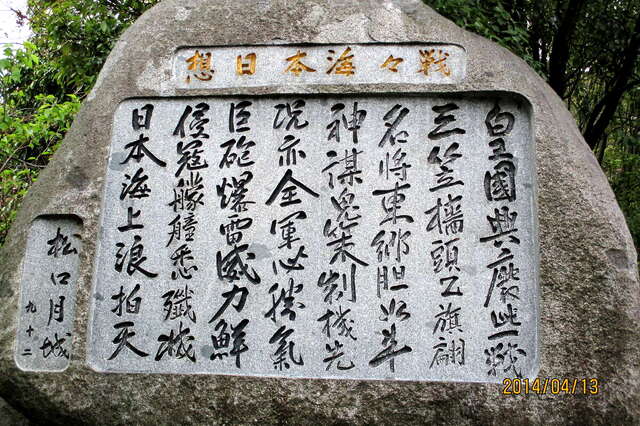 想日本海々戦
皇國興廢此一戦
三笠檣頭Z旗翩
名将東郷胆如斗
神謀鬼策制機先
況亦全軍必勝氣
巨砲爆雷威力鮮
侵寇艨艟悉殲滅
日本海上浪拍天
松口月城
九十二
2014/04/13